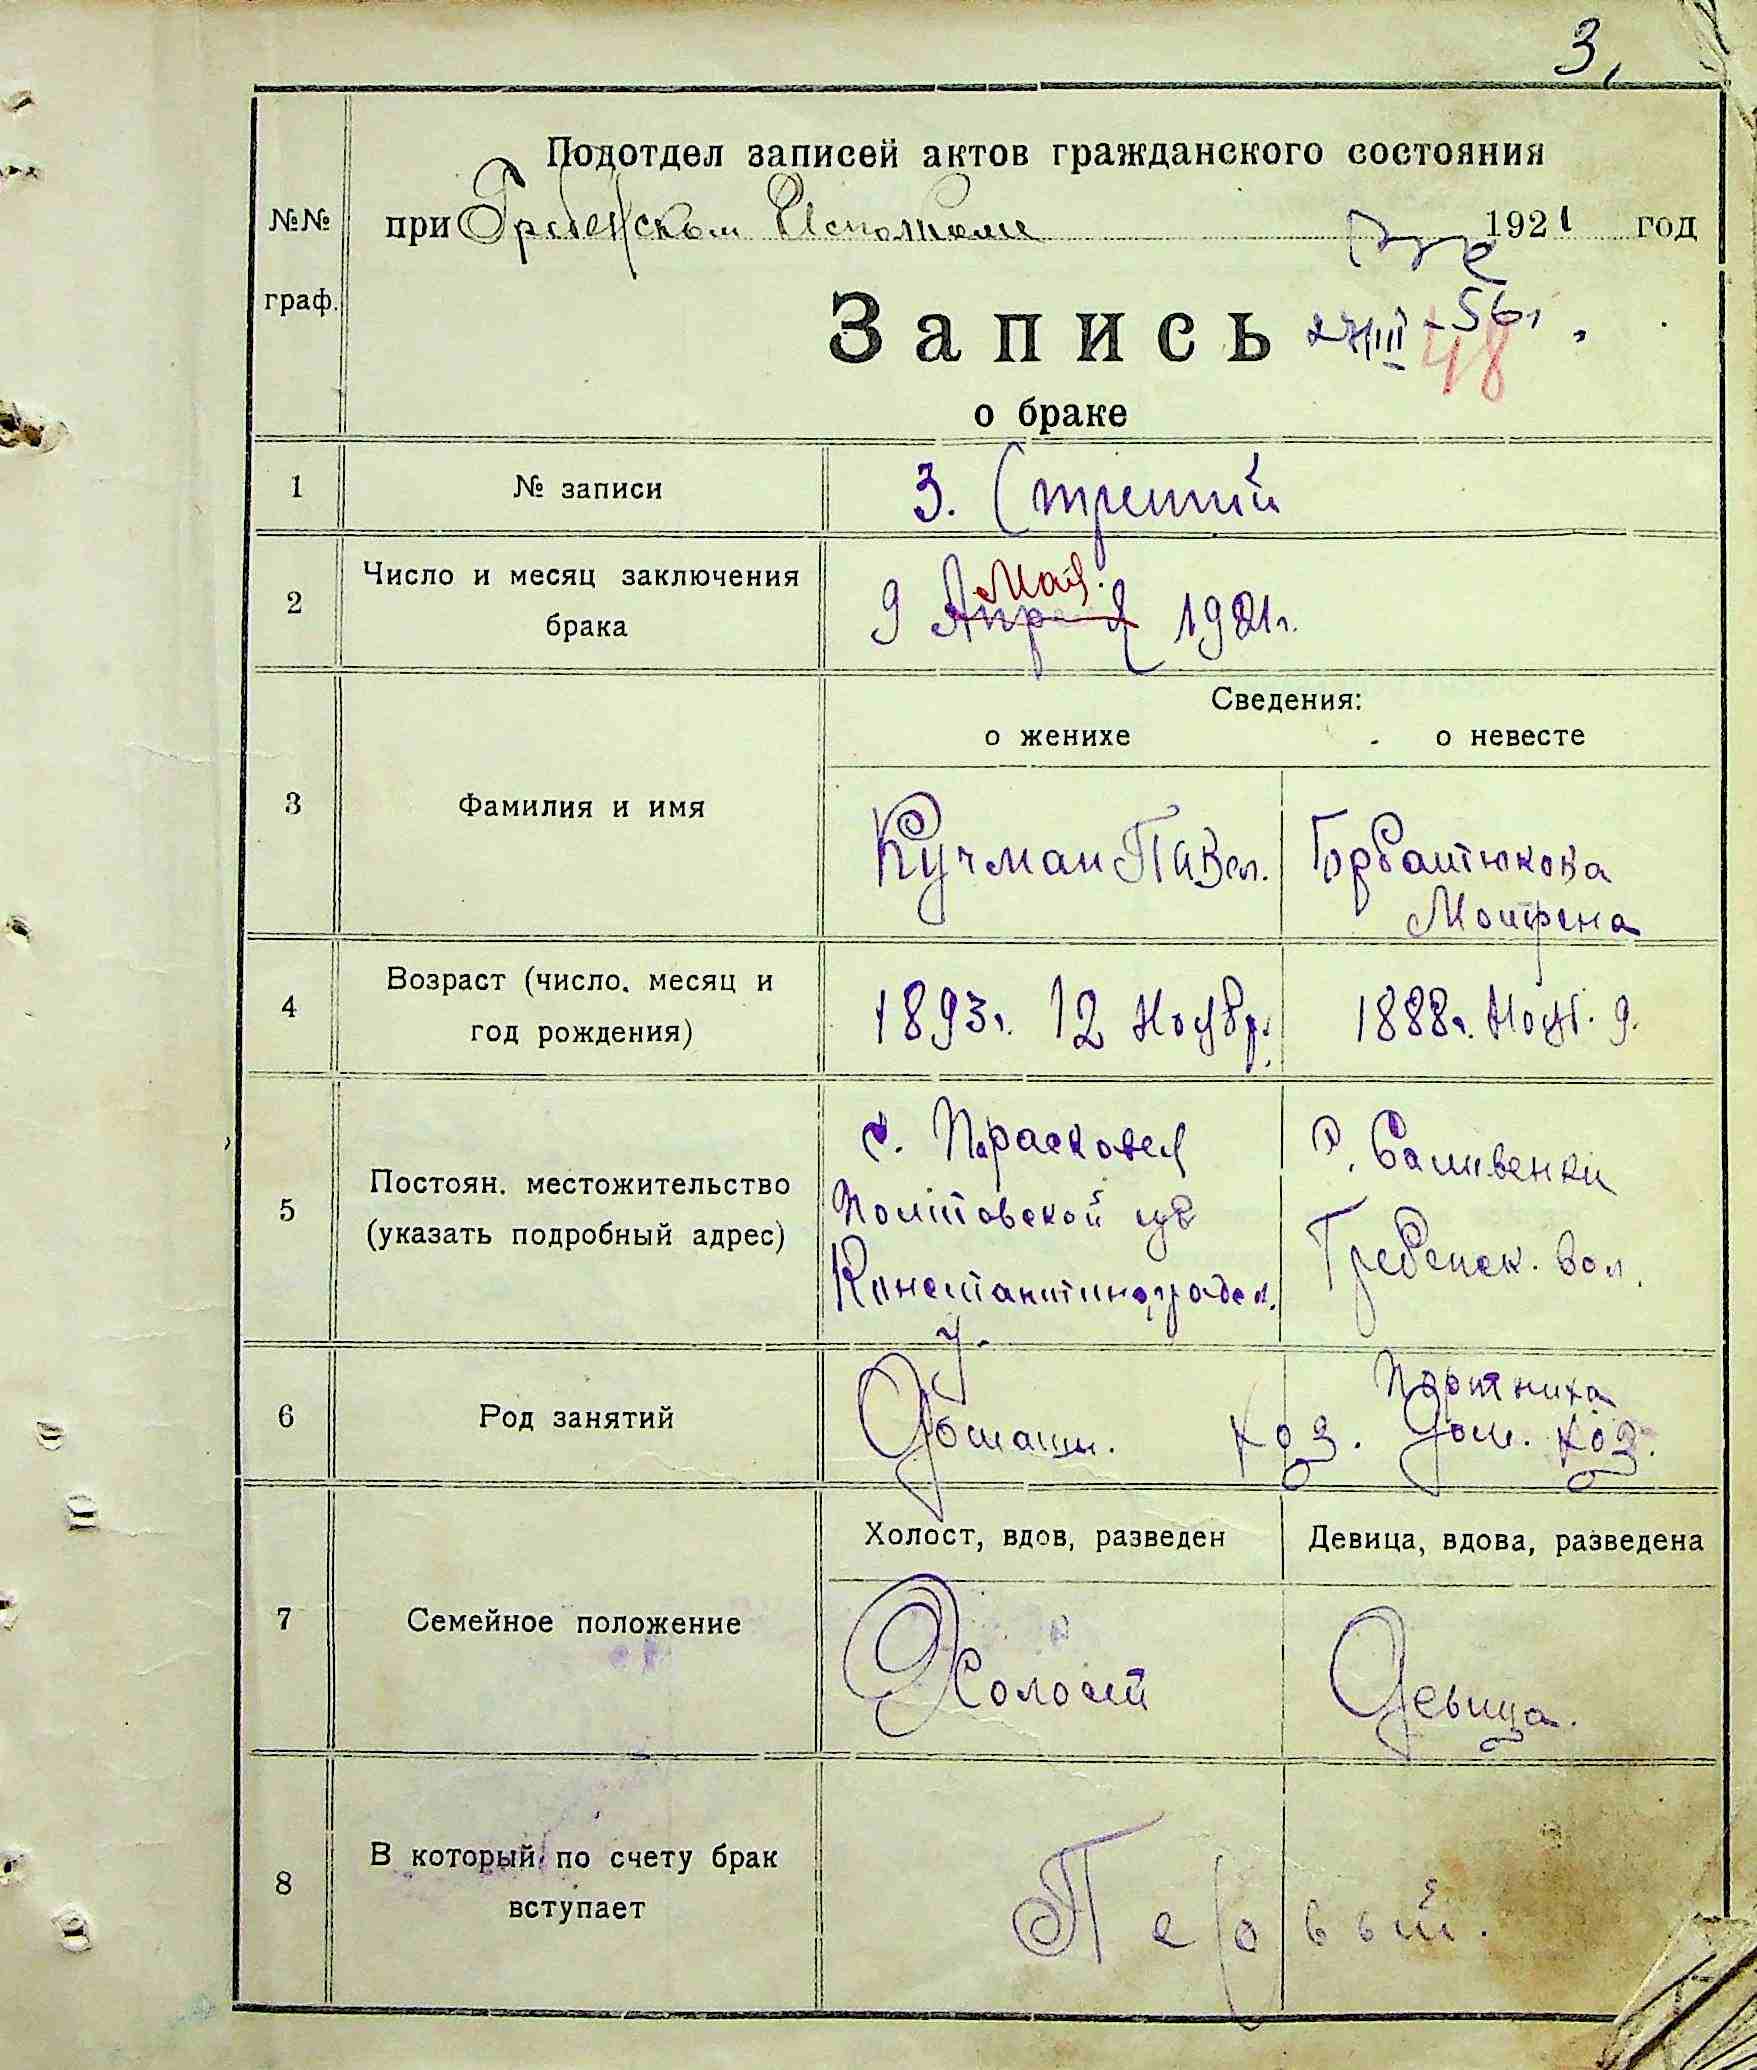 3,
Подотдел записей актов гражданского состояния
№№
при Гребенском Исполкоме 1921 год
граф.
Запись
27/III - 56г.
48
о браке
1 № записи 3. (третий
2 Число и месяц заключения
брака
Мая
9 Апреля 1921г.
Сведения:
о женихе о невесте
3 Фамилия и имя
Кучман Павел. Горбатюкова
Мотрена
4 Возраст (число, месяц и
год рождения)
1893г. 12 Ноябр. 1888г. Нояб. 9.
5 Постоян. местожительство
(указать подробный адрес)
с. Парасковея с. Саливенки
Полтовской губ Гребенск. вол.
Константиноградск.
у.
6 Род занятий
Портниха
Домашн. хоз. Дом. хоз.
Холост, вдов, разведен Девица, вдова, разведена
7 Семейное положение
Холост Девица.
8 В который по счету брак
вступает
Первый.